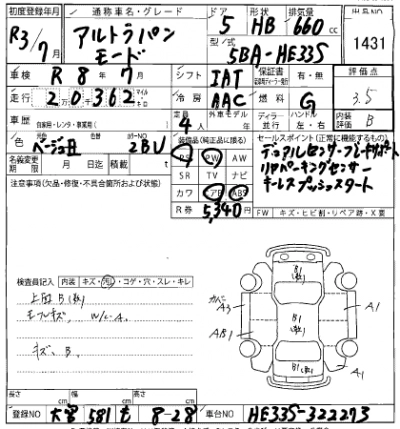 初度登録年月 通称車名・グレード ドア 形状 排気量 出品NO
R3/7月 アルトラパン モード 5 HB 660cc 1431
型式 5BA-HE33S
車検 R8年7月 シフト IAT 保証書 有・無 評価点
走行 20362 冷房 AAC 燃料 G 3.5
車歴 定員 4人 外車モデル ディーラー 並行 ハンドル 左・右 内装評価 B
色 ベージュII カラーNO 2BU 装備品(純正品に限る) セールスポイント(正常に機能するもの)
名義変更期限 月 日迄 積載 t
PS PW AW デュアルセンサーブレーキサポート
SR TV ナビ リヤパーキングセンサー
カワ エアB ABS キーレスプッシュスタート
R券 5,340円 FW キズ・ヒビ割・リペア跡・X要
注意事項(欠品・修復・不具合箇所および状態)
検査員記入 内装 キズ・汚レ・コゲ・穴・スレ・キレ
キズ、B、
B1
カバー A3
A1
B1
A/B1
B1
A1
長さ cm 幅 cm 高さ cm
登録NO 大宮 581 も 8-28 車台NO HE33S-322273